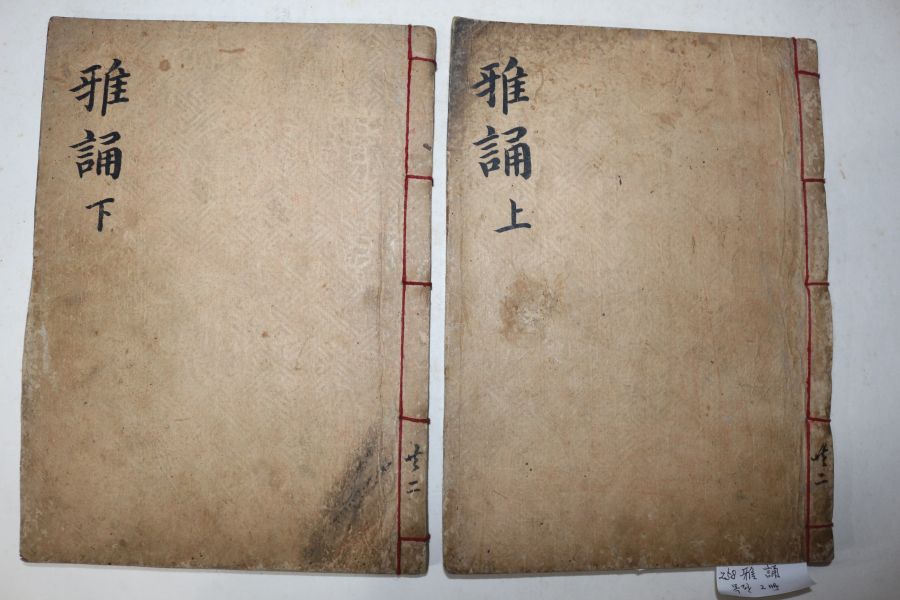 雅誦下
共二
雅誦上
共二
258 雅誦
목판 2冊